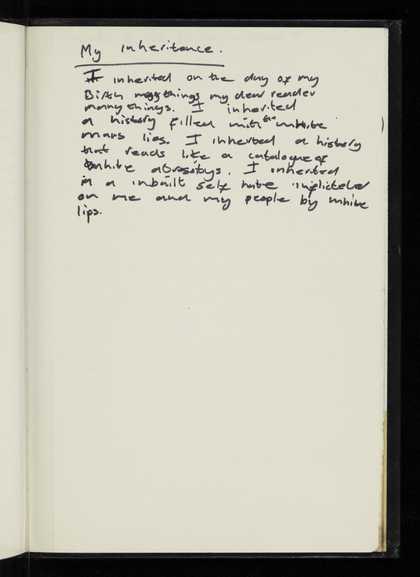 My inheritence.
I inherited on the day of my
Birth things my dear reader
many things. I inherited
a history filled with the white
mans lies. I inherited a history
that reads like a catalogue of
white atrositys. I inherited
a inbuilt self hate inflicted
on me and my people by white
lips.